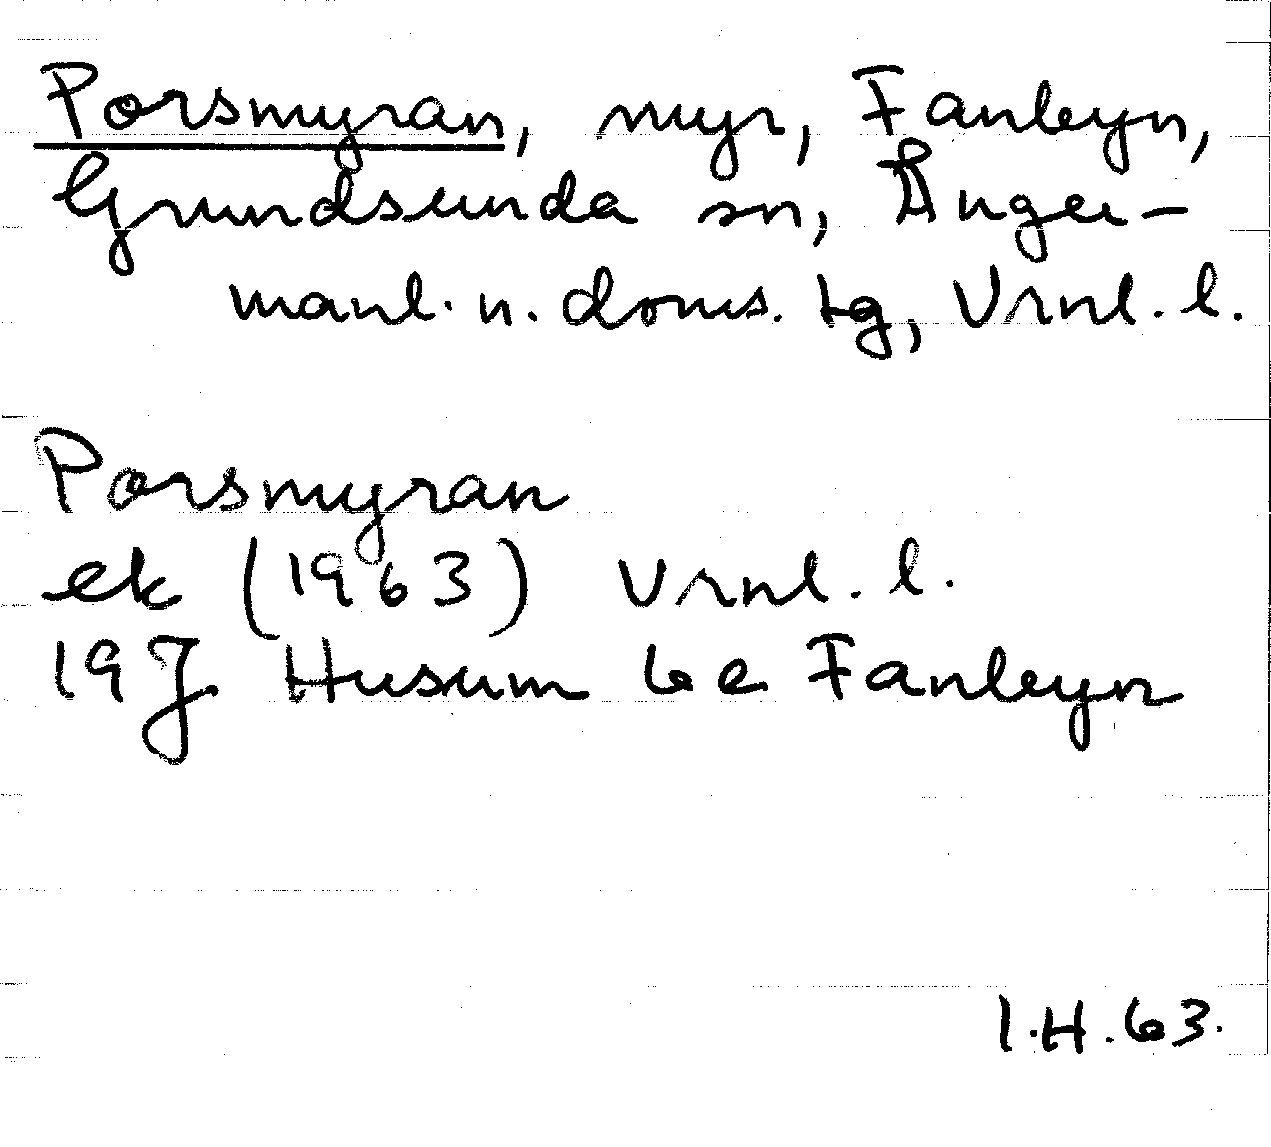 Porsmyran, myr, Fanbyn,
Grundsunda sn, Ånger-
manl. n. doms. tg, Vrnl. l.
Porsmyran
ek (1963) Vrnl. l.
19J Husum 6e Fanbyn
I.H.63.